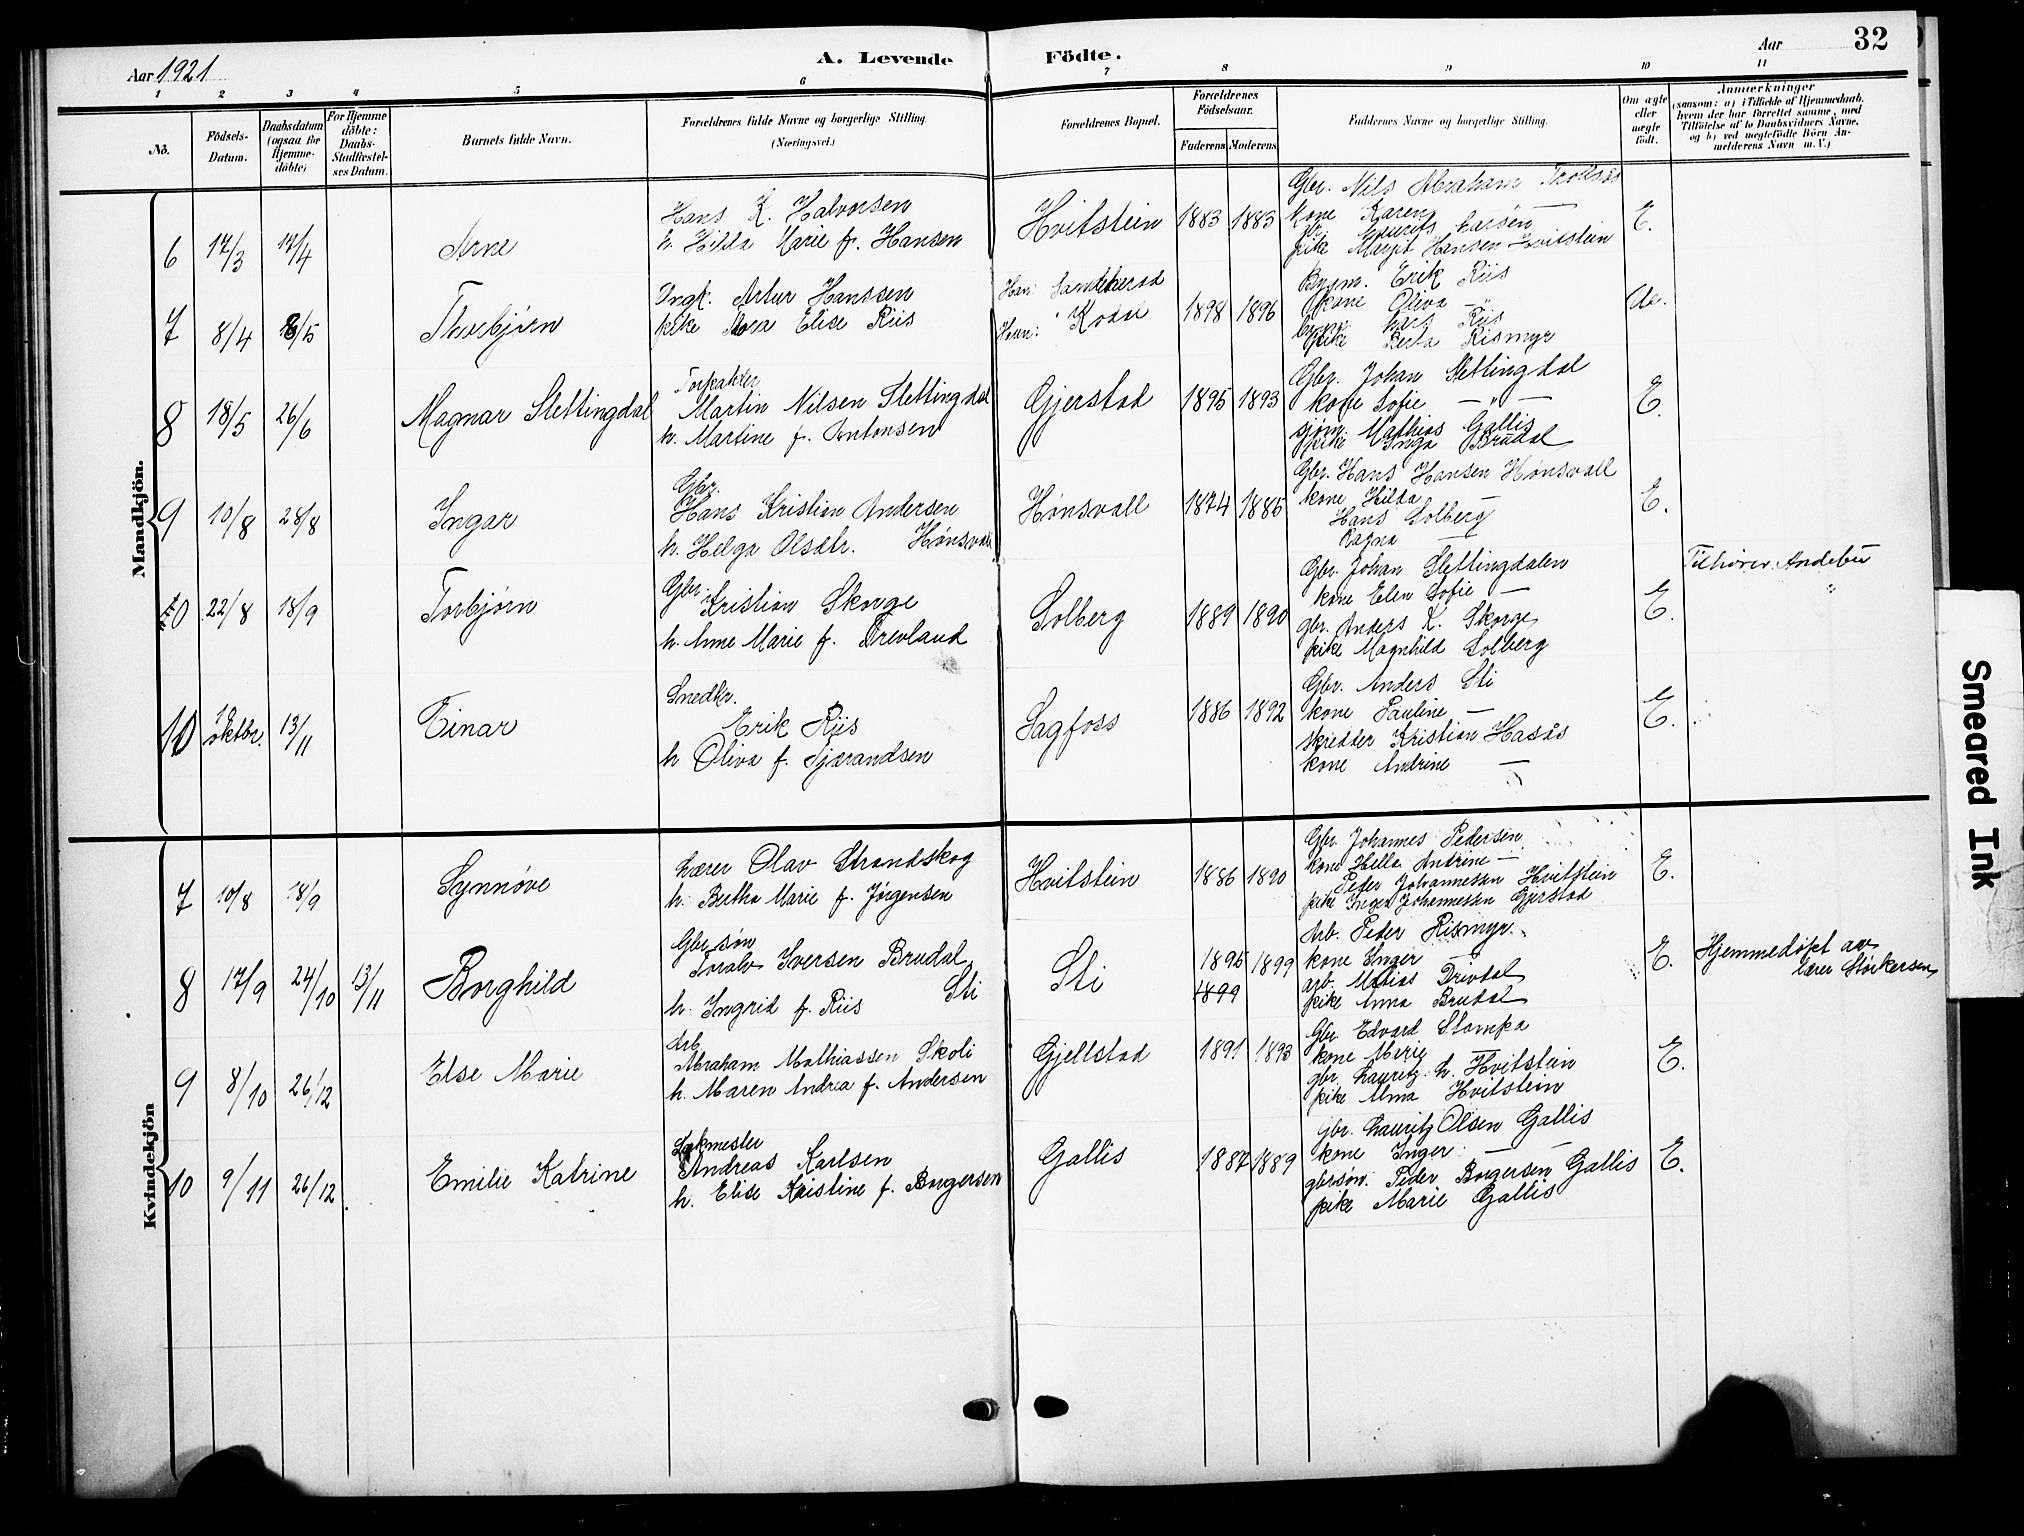 Aar 1921
A. Levende Födte.
Aar
32
1 2 3 4 5 6 7 8 9 10 11
No.
Födsels-Datum.
Daabsdatum (ogsaa for Hjemme-döbte)
For Hjemme döbte: Daabs-Stadfæstel-ses Datum.
Barnets fulde Navn.
Forældrenes fulde Navne og borgerlige Stilling. (Næringsvei.)
Forældrenes Bopæl.
Forældrenes Födselsaar.
Faderens Moderens
Faddernes Navne og borgerlige Stilling.
Om ægte eller uægte födt.
Anmærkninger
(saasom: a) i Tilfælde af Hjemmedaab, hvem der har forrettet samme, med Tilföielse af to Daabsvidners Navne, og b) ved uægtefödte Börn An-melderens Navn m.V.)
Mandkjön.
6 17/3 17/4 Arne
Hans K. Halvorsen
h. Hilda Marie f. Hansen
Hvitstein 1883 1883
Gbr. Nils Abraham Trollsås
kone Karen —
gbr. Laurits Larsen
pike Margit Hansen Hvitstein
E.
7 8/4 8/5 Thorbjørn
Ungk. Artur Hanssen
pike Mora Elise Riis
Han: Sandeherad
Hun: Kodal
1898 1896
Bygm. Erik Riis
kone Oliva — " —
Lars Riis
pike Berta Rismyr
Ue.
8 18/5 26/6 Magnar Slettingdal
Martin Nilsen Slettingdal
h. Martine f. Antonsen
Gjerstad 1895 1893
Gbr. Johan Slettingdal
kone Sofie — " —
sjøm. Mathias Gallis
pike Inga Brudal
E.
9 10/8 28/8 Ingar
Gbr.
Hans Kristian Andersen
h. Helga Olsdtr. Hønsvall
Hønsvall 1874 1885
Gbr. Hans Hansen Hønsvall
kone Hilda —
Hans Solberg
Ragna —
E.
10 22/8 18/9 Torbjørn
Gbr. Kristian Skorge
h. Anne Marie f. Drevland
Solberg 1889 1890
Gbr. Johan Slettingdalen
kone Elen Sofie —
gbr. Anders K. Skorge
pike Magnhild Solberg
E.
Tilhører Andebu
10 oktbr. 13/11 Einar
Snedkr.
Erik Riis
h Oliva f. Tjærandsen
Sagfoss 1886 1892
Gbr. Anders Sti
kone Pauline —
skredder Kristian Hasås
kone Andrine —
E.
Kvindekjön
7 10/8 18/9 Synnøve
Lærer Olav Strandskog
h. Bertha Marie f. Jørgensen
Hvitstein 1886 1890
Gbr. Johannes Pedersen
kone Hella Andrine —
Peder Johannessen Hvitstein
pike Inga Johannessen Gjerstad
E.
8 17/9 24/10 13/11 Borghild
Gbr søn
Toralv Iversen Brudal, Sti
h. Ingrid f. Riis
Sti
1895 1899
1899
Arb. Peder Rismyr.
kone Inger —
arb. Matias Drivdal
pike Anna Brudal
E.
Hjemmedøpt av
lærer Størkersen
9 8/10 26/12 Else Marie
Arb.
Abraham Mathiassen Skoli
h. Maren Andrea f. Andersen
Gjellstad 1891 1893
Gbr Edvard Stampa
kone Merie —
gbr. Lauritz h. Hvitstein
pike Alma Hvitstein
E.
10 9/11 26/12 Emilie Katrine
Andreas Karlsen
h. Elise Kristine f. Borgersen
Gallis 1887 1889
gbr. Lauritz Olsen Gallis
kone Inger —
gbrsøn. Peder Borgersen Gallis
pike Marie Gallis
E.
Smeared Ink